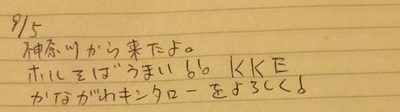 9/5
神奈川から来たよ。
ホルそばうまい!! KKE
かながわキンタローをよろしく!